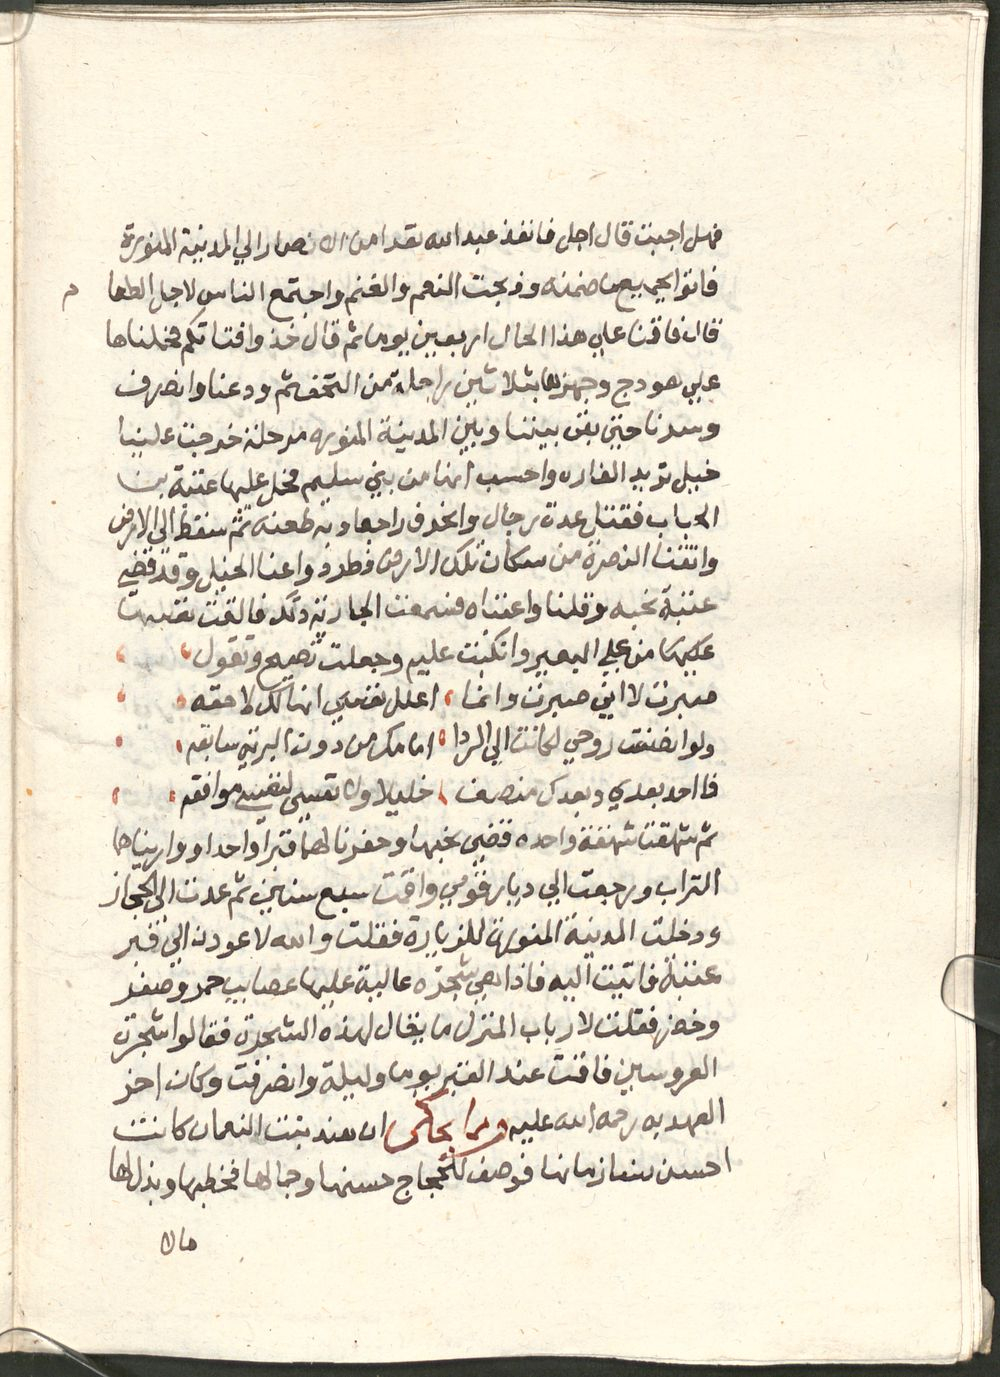 فهل اجبت قال اجل فانفذ عبد الله نفرا من الانصار الي المدينة المنورة
فاتوا بجميع ما ضمنه وذبحت النعم والغنم واجتمع الناس لاجل الطعا م
قال فاقمنا علي هذا الحال اربعين يوما ثم قال خذوا فتاتكم فحملناها
علي هودج وجهزها بثلاثين راحلة من التحف ثم ودعنا وانصرف
وسرنا حتي بقي بيننا وبين المدينة المنوره مرحلة خرجت علينا
خيل تريد الغاره واحسب انها من بني سليم فحمل عليها عتبة بن
الحباب فقتل عدة رجال وانحرف راجعا وبه طعنه ثم سقط الي الارض
واتتنا النصرة من سكان تلك الارض فطردوا عنا الخيل وقد قضي
عتبة نحبه وقلنا واعتباه فسمعت الجارية ذلك فالقت نفسها
عليها من علي البعير وانكبت عليه وجعلت تصيح وتقول
صبرت لا اني صبرت وانما اعلل نفسي انها بك لاحقه
ولو انصفت روحي لكانت الي الردا امامك من دون البرية سابقه
فما احد بعدي وبعدك منصف خليلا ولا نفسي لنفسي موافقه
ثم شهقت شهقة واحده قضي نحبها وحفرنا لهما قبرا واحدا وواريناهما
التراب ورجعت الي ديار قومي واقمت سبع سنين ثم عدت الي الحجاز
ودخلت المدينة المنورة للزيارة فقلت والله لاعودن الي قبر
عتبة فاتيت اليه فاذا هي شجره عالية عليها عصايب حمر وصفر
وخضر فقلت لارباب المنزل ما يقال لهذه الشجرة فقالوا شجرة
العروسين فاقمت عند القبر يوما وليلة وانصرفت وكان اخر
العهد به رحمة الله عليه ومما يحكي ان هند بنت النعمان كانت
احسن نسا زمانها فوصف للحجاج حسنها وجمالها فخطبها وبذل لها
مالا